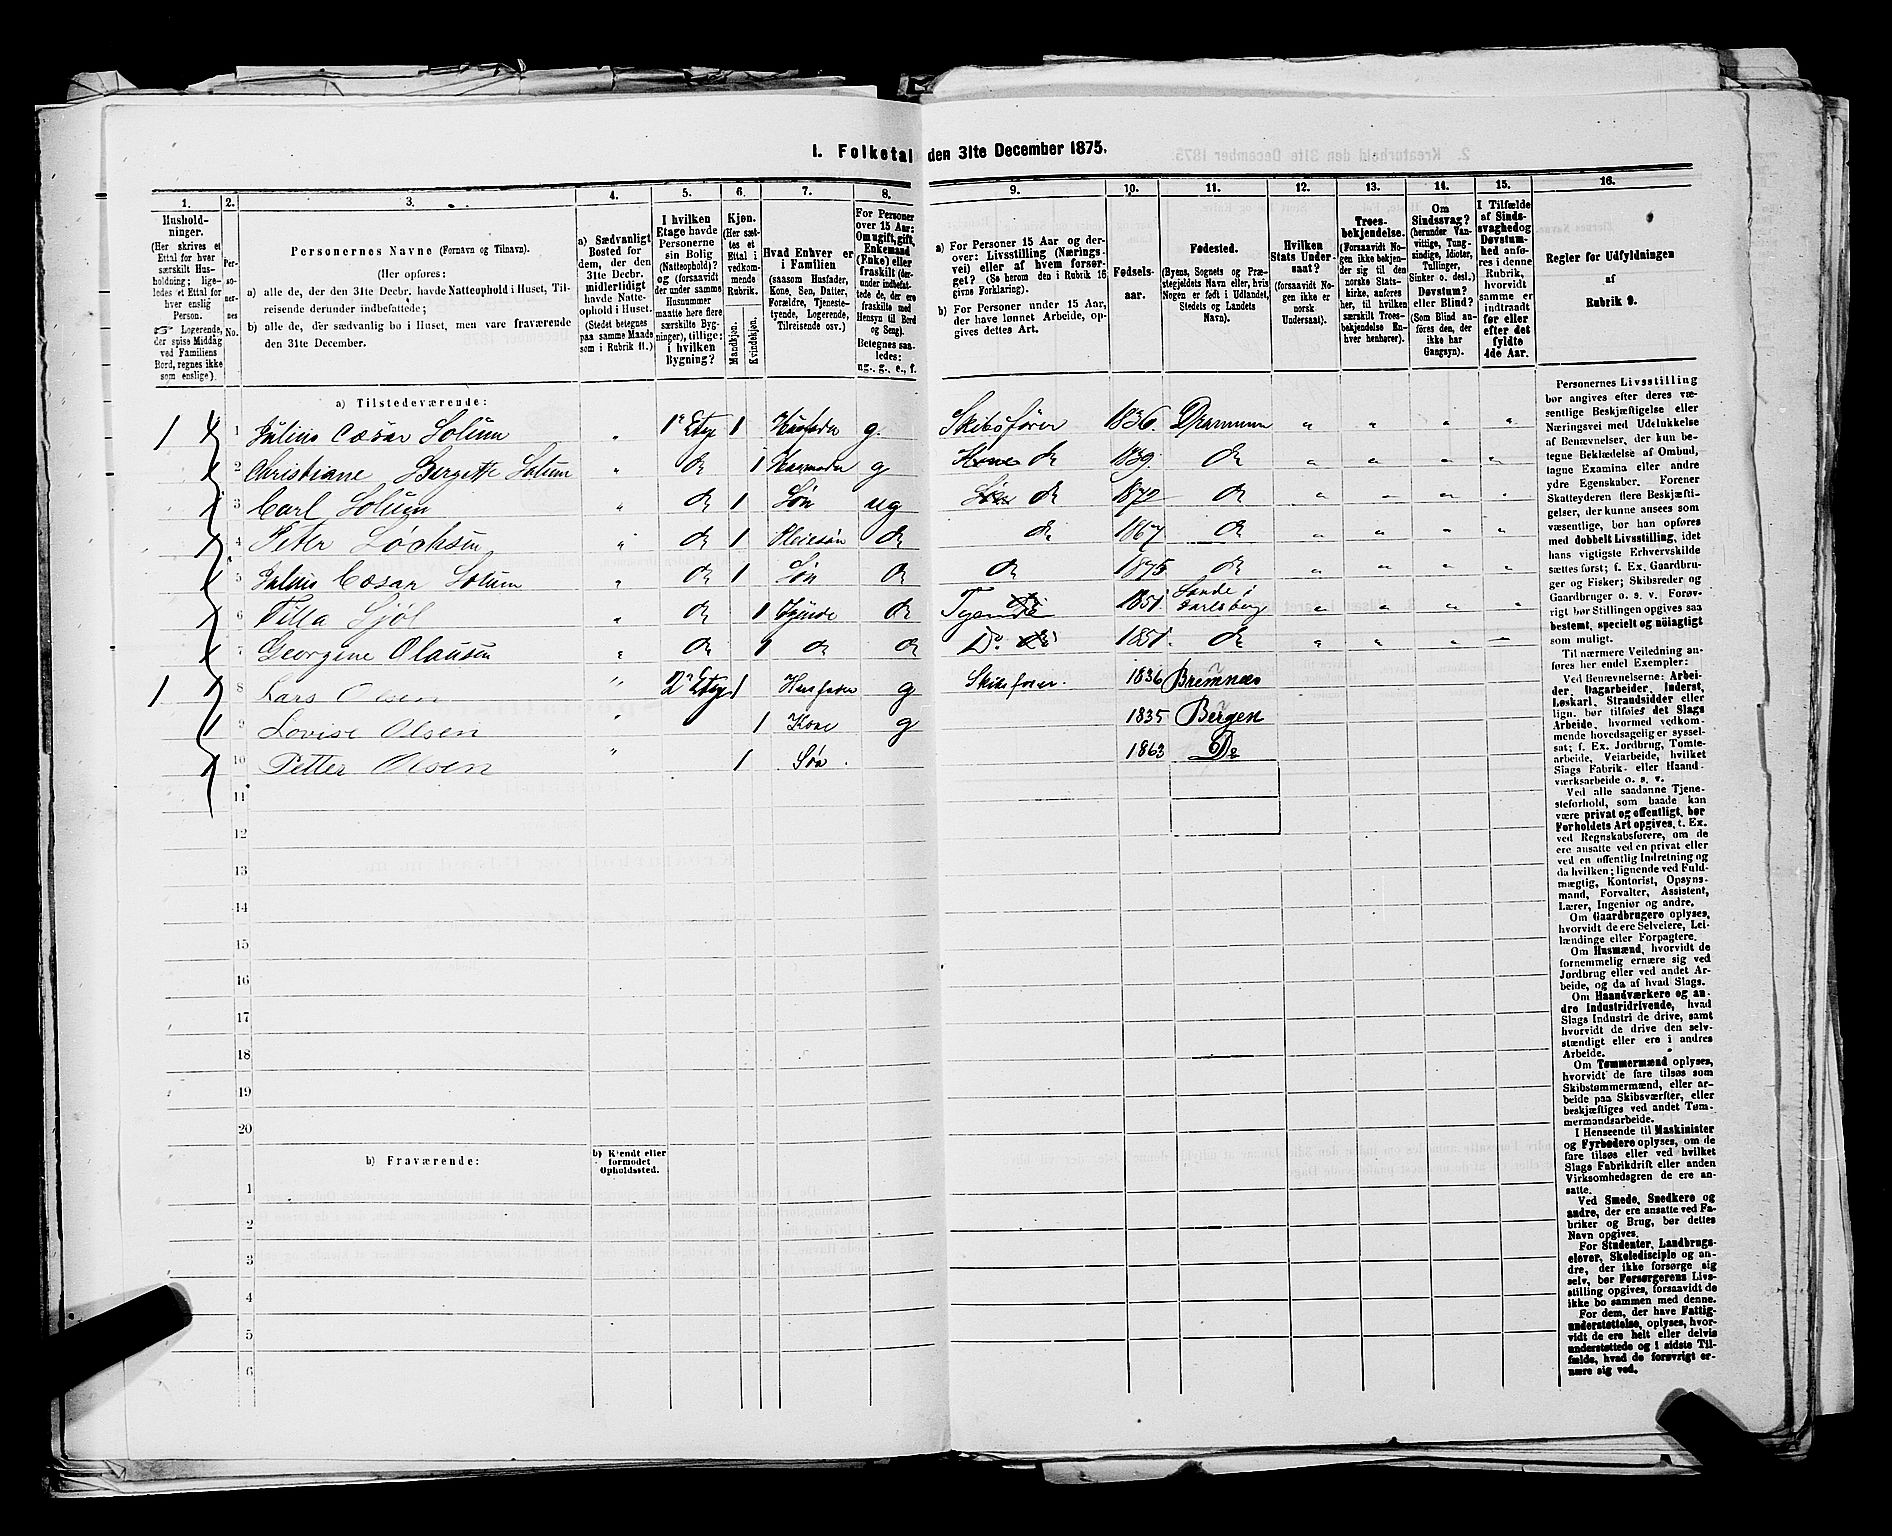 1. Folketal den 31te December 1875.
1. 2. 3. 4. 5. 6. 7. 8. 9. 10. 11. 12. 13. 14. 15. 16.
Hushold-
ninger.
(Her skrives et
Ettal for hver
særskilt Hus-
holdning; lige-
ledes et Ettal for
hver enslig
Person.
☞ Logerende,
der spise Middag
ved Familiens
Bord, regnes ikke
som enslige).
Per-
so-
ner-
nes
No.
Personernes Navne (Fornavn og Tilnavn).
(Her opføres:
a) alle de, der den 31te Decbr. havde Natteophold i Huset, Til-
reisende derunder indbefattede;
b) alle de, der sædvanlig bo i Huset, men vare fraværende
den 31te December.
a) Sædvanligt
Bosted for
dem, der den
31te Decbr.
midlertidigt
havde Natte-
ophold i Huset.
(Stedet betegnes
paa samme Maade
som i Rubrik 11.)
I hvilken
Etage havde
Personerne
sin Bolig
(Natteophold)?
og (forsaavidt
der under samme
Husnummer
maatte høre flere
særskilte Byg-
ninger), tillige:
i hvilken
Bygning?
Kjøn.
(Her sæt-
tes et
Ettal i
vedkom-
mende
Rubrik.
Mandkjøn.
Kvindekjøn.
Hvad Enhver er
i Familien
(saasom Husfader,
Kone, Søn, Datter,
Forældre, Tjeneste-
tyende, Logerende,
Tilreisende osv.)
For Personer
over 15 Aar:
Om ugift, gift,
Enkemand
(Enke) eller
fraskilt (der-
under indbefat-
tede de, der ere
fraskilte med
Hensyn til Bord
og Seng).
Betegnes saa-
ledes:
ug., g., e., f.
a) For Personer 15 Aar og der-
over: Livsstilling (Nærings-
vei) eller af hvem forsør-
get? (Se herom den i Rubrik 16
givne Forklaring).
b) For Personer under 15 Aar,
der have lønnet Arbeide, op-
gives dettes Art.
Fødsels-
aar.
Fødested.
(Byens, Sognets og Præ-
stegjeldets Navn eller, hvis
Nogen er født i Udlandet,
Stedets og Landets
Navn).
Hvilken
Stats Under-
saat?
(forsaavidt No-
gen ikke er
norsk
Undersaat).
Troes-
bekjendelse.
(Forsaavidt No-
gen ikke bekjen-
der sig til den
norske Stats-
kirke, anføres
her, til hvilken
særskilt Troes-
bekjendelse En-
hver henhører).
Om
Sindssvag?
(herunder Van-
vittige, Tung-
sindige, Idioter,
Tullinger,
Sinker o. desl.)
Døvstum?
eller Blind?
(Som Blind an-
føres den, der
ikke har
Gangsyn).
I Tilfælde
af Sinds-
svaghed og
Døvstum-
hed anfø-
res i denne
Rubrik,
hvorvidt
samme er
indtraadt
før eller
efter det
fyldte
4de Aar.
Regler for Udfyldningen
af
Rubrik 9.
a) Tilstedeværende:
1 1 Julius Cæsar Solum „ 1' Etage 1 Husfader g. Skibsfører 1836. Drammen „ „ „ „
2 Christiane Bergette Solum „ do 1 Husmoder g Kone do 1839. do „ „ „ „
3 Carl Solum „ do 1 Søn ug do 1872 do „ „ „ „
4 Peter Løchsen „ do 1 Pleiesøn do do 1867 do „ „ „ „
5 Julius Cæsar Solum „ do 1 Søn do do 1875 do „ „ „ „
6 Tilla Sjøl „ do 1 Tyende do Tyende 1851. Sande i Jarlsberg „ „ „ „
7 Georgine Olausen „ do 1 do do Do 1851. do „ „ „ „
1 8 Lars Olsen „ 2' Etage 1 Husfader g Skibsfører. 1836 Bremnæs
9 Lovise Olsen „ 1 Kone g 1835 Bergen
10 Petter Olsen „ 1 Søn. 1863 Do
11
12
13
14
15
16
17
18
19
20
b) Fraværende:
b) Kjendt eller
formodet
Opholdssted.
1
2
3
4
5
6
Personernes Livsstilling
bør angives efter deres væ-
sentlige Beskjæftigelse eller
Næringsvei med Udelukkelse
af Benævnelser, der kun be-
tegne Beklædelse af Ombud,
tagne Examina eller andre
ydre Egenskaber. Forener
Skatteyderen flere Beskjæfti-
gelser, der kunne ansees som
væsentlige, bør han opføres
med dobbelt Livsstilling, idet
hans vigtigste Erhvervskilde
sættes først; f. Ex. Gaardbru-
ger og Fisker; Skibsreder og
Gaardbruger o. s. v. Forøv-
rigt bør Stillingen opgives saa
bestemt, specielt og nøiagtigt
som muligt.
Til nærmere Veiledning an-
føres her endel Exempler:
Ved Benævnelserne: Arbei-
der, Dagarbeider, Inderst,
Løskarl, Strandsidder eller
lign. bør tilføies det Slags
Arbeide, hvormed vedkom-
mende hovedsagelig er syssel-
sat; f. Ex. Jordbrug, Tomte-
arbeide, Veiarbeide, hvilket
Slags Fabrik- eller Haand-
værksarbeide o. s. v.
Ved alle saadanne Tjene-
steforhold, som baade kan
være privat og offentligt, bør
Forholdets Art opgives, t. Ex.
ved Regnskabsførere, om de
ere ansatte ved en privat eller
ved en offentlig Indretning og
da hvilken; lignende ved Fuld-
mægtig, Kontorist, Opsyns-
mand, Forvalter, Assistent,
Lærer, Ingeniør og andre.
Om Gaardbrugere oplyses,
hvorvidt de ere Selveiere, Lei-
lændinge eller Forpagtere.
Om Husmænd, hvorvidt de
fornemmelig ernære sig ved
Jordbrug eller ved andet Ar-
beide, og da af hvad Slags.
Om Haandværkere og an-
dre Industridrivende, hvad
Slags Industri de drive, samt
hvorvidt de drive den selv-
stændigt eller ere i andres
Arbeide.
Om Tømmermænd oplyses,
hvorvidt de fare tilsøs som
Skibstømmermænd, eller ar-
beide paa Skibsværfter, eller
beskjæftiges ved andet Tøm-
mermandsarbeide.
I Henseende til Maskinister
og Fyrbødere oplyses, om de
fare tilsøs eller ved hvilket
Slags Fabrikdrift eller anden
Virksomhedsgren de ere an-
satte.
Ved Smede, Snedkere og
andre, der ere ansatte ved Fa-
briker og Brug, bør dettes
Navn opgives.
For Studenter, Landbrugs-
elever, Skoledisciple og an-
dre, der ikke forsørge sig
selv, bør Forsørgerens Livs-
stilling opgives, forsaavidt de
ikke bo sammen med denne.
For dem, der have Fattig-
understøttelse, oplyses, hvor-
vidt de ere helt eller delvis
understøttede og i sidste Til-
fælde, hvad de forøvrigt er-
nære sig ved.